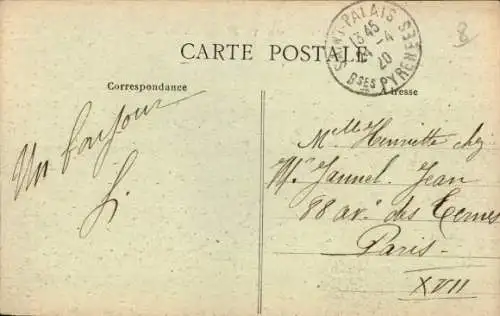 SAINT-PALAIS
13 45
-4
20
Bses PYRENEES
8
CARTE POSTALE
Correspondance
Adresse
Un bonjour
Melle Henriette chez
Mr Jannel. Jean
88 av. des Ternes
Paris.
XVII